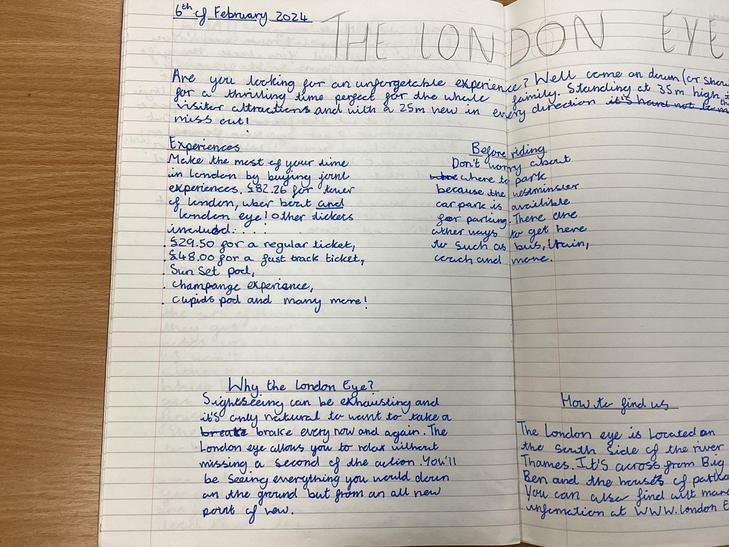 6th of February 2024
THE LONDON EYE
Are you looking for an unforgetable experience? Well come on down (or
for a thrilling time perfect for the whole family. Standing at 35m high
visitor attractions and with a 25m vew in every direction it's hard not to
miss out!
Experiences
Make the most of your time
in london by buying joint
experiences. £82.26 for tower
of london, uber boat and
london eye! Other tickets
included....
. £29.50 for a regular ticket,
. £48.00 for a fast track ticket,
. Sun Set pod,
. champange experience,
. cupids pod and many more!
Before riding
Don't worry about
where to park
because the westminster
car park is availible
for parking. There are
other ways to get here
to such as bus, train,
coach and more.
Why the London Eye?
Sightseeing can be exhausting and
it's only natural to want to take a
breake brake every now and again. The
London eye allows you to relax without
missing a second of the action. You'll
be seeing everything you would down
on the ground but from an all new
point of vew.
How to find us
The London eye is located on
the south side of the river
Thames. It's across from Big
Ben and the houses of
You can also find out
infomation at WWW.London E